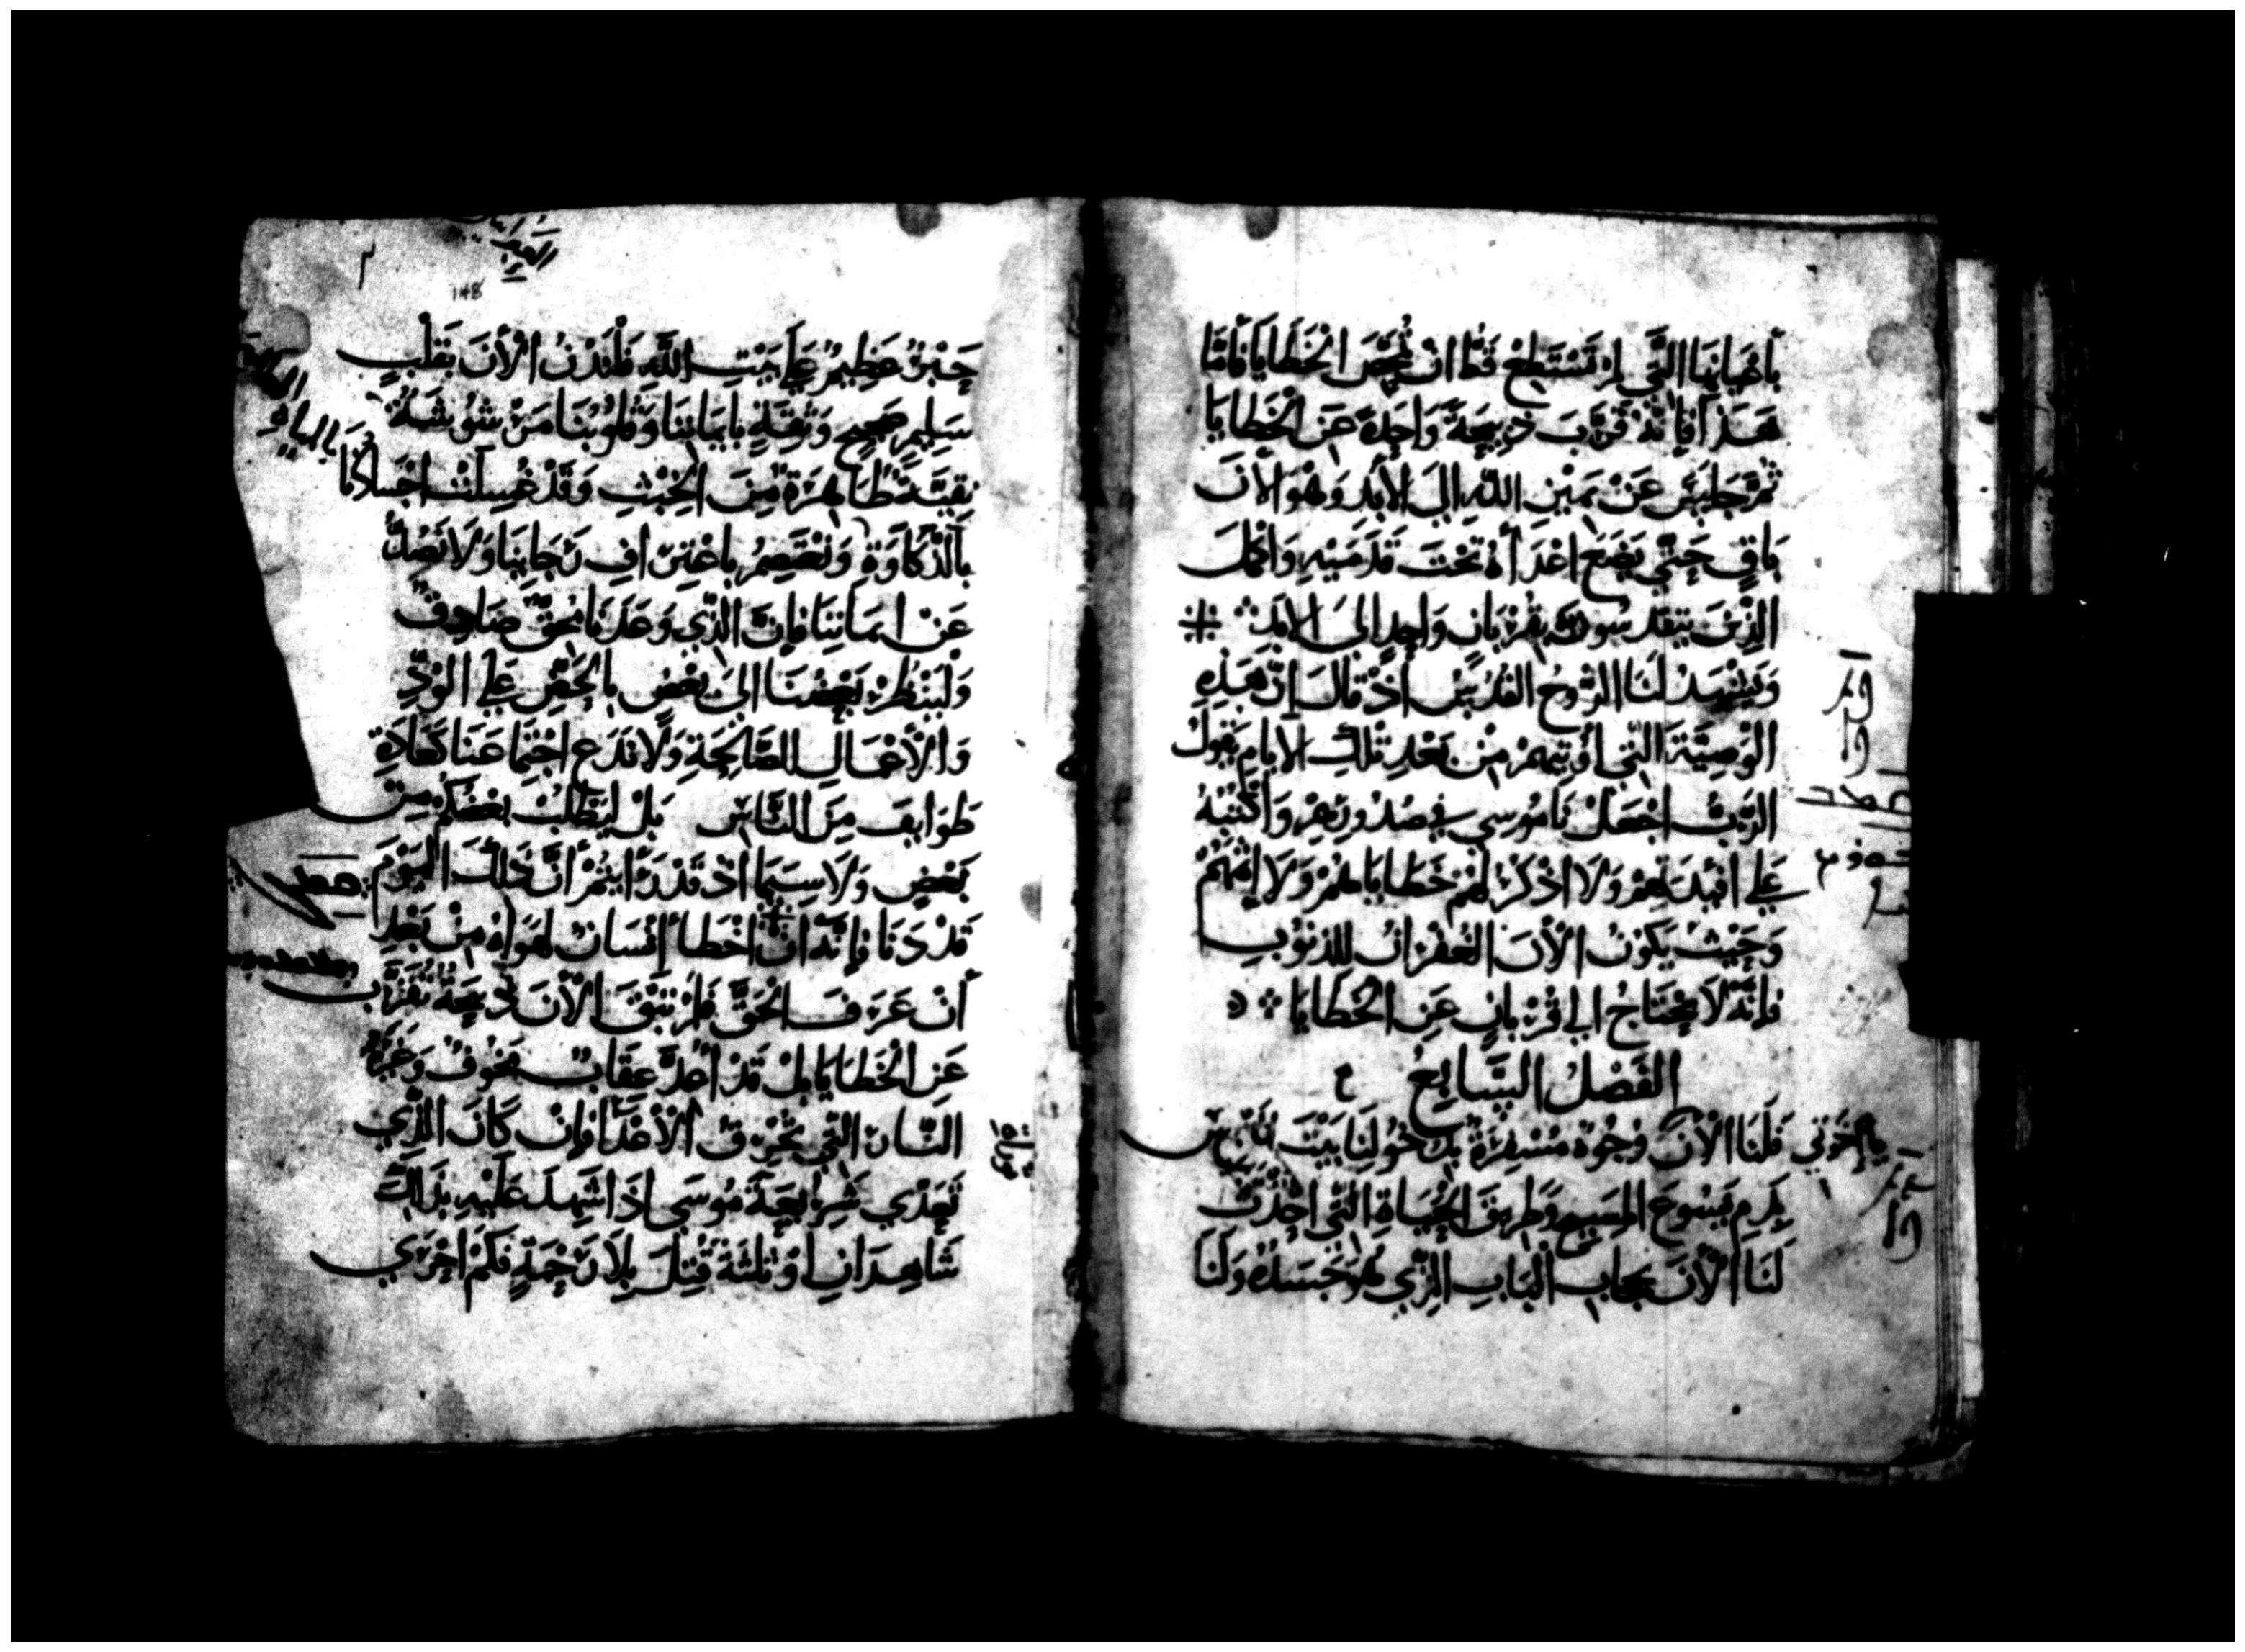 باعيانها التي لم تستطع قط ان تمحص الخطايا فاما
هذا فانه قرب ذبيحة واحدة عن الخطايا
ثم جلس عن يمين الله الي الابد وهو الان
باق حتي يضع اعداه تحت قدميه واكمل
الذين يتقدسون به بقربان واحد الى الابد
ويشهد لنا الروح القدس اذ قال ان هذه
الوصية التي اوتيهم من بعد تلك الايام يقول
الرب اجعل ناموسي في صدورهم واكتبه
علي افيدتهم ولا اذكر لهم خطاياهم ولا اثمهم
وحيث يكون الان الغفران للذنوب
فانه لا يحتاج الي قربان عن الخطايا
الفصل السابع
يا اخوتي فلنا الان وجوه مسفرة بدخولنا بيت
بدم يسوع المسيح وطريق الحياة التي احدث
لنا الان بحجاب الباب الذي هو جسده ولنا
148
حبر عظيم علي بيت الله فلندن الان بقلب
سليم صحيح وثقة بايماننا وقلوبنا مرشوشة
نقية طاهرة من الخبث وقد غسلت اجسادنا
بالذكاوة ونعتصم باعتراف رجاينا ولا نضل
عن ايماننا فان الذي وعدنا محق صادق
ولينظر بعضنا الى بعض بالحض علي الود
والاعمال الصالحة ولا ندع اجتماعنا كعادة
طوايف من الناس بل ليطلب بعضكم من
بعض ولا سيما اذ قد رايتم ان ذلك اليوم
قد دنا فانه ان اخطا انسان لهواه من بعد
ان عرف الحق فلم تبق الان ذبيحة تقرب
عن الخطايا بل قد اعد عقاب مخوف وغيرة
النار التي تحرق الاعدا فان كان الذي
تعدي شريعة موسي اذا شهد عليه بذلك
شاهدان او ثلثة قتل بلا رحمة فكم احري